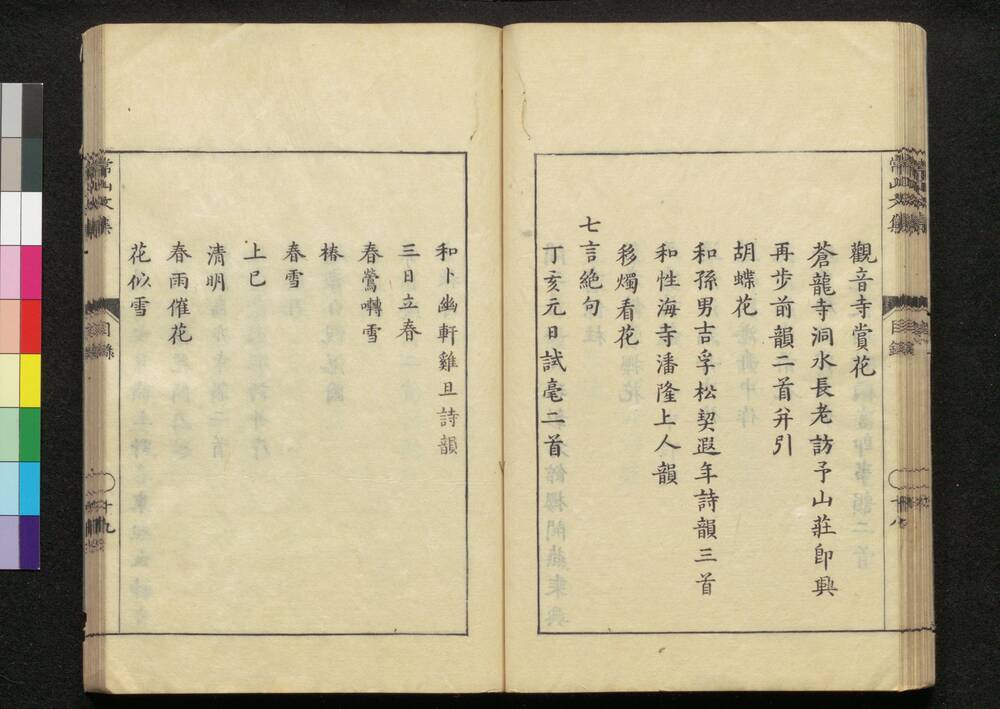 觀音寺賞花
蒼龍寺洞水長老訪予山莊即興
再步前韻二首并引
胡蝶花
和孫男吉孚松契遐年詩韻三首
和性海寺潘隆上人韻
移燭看花
七言絶句
丁亥元日試毫二首
和卜幽軒雞旦詩韻
三日立春
春鶯囀雪
椿
春雪
上巳
清明
春雨催花
花似雪
常山文集
目錄
十九